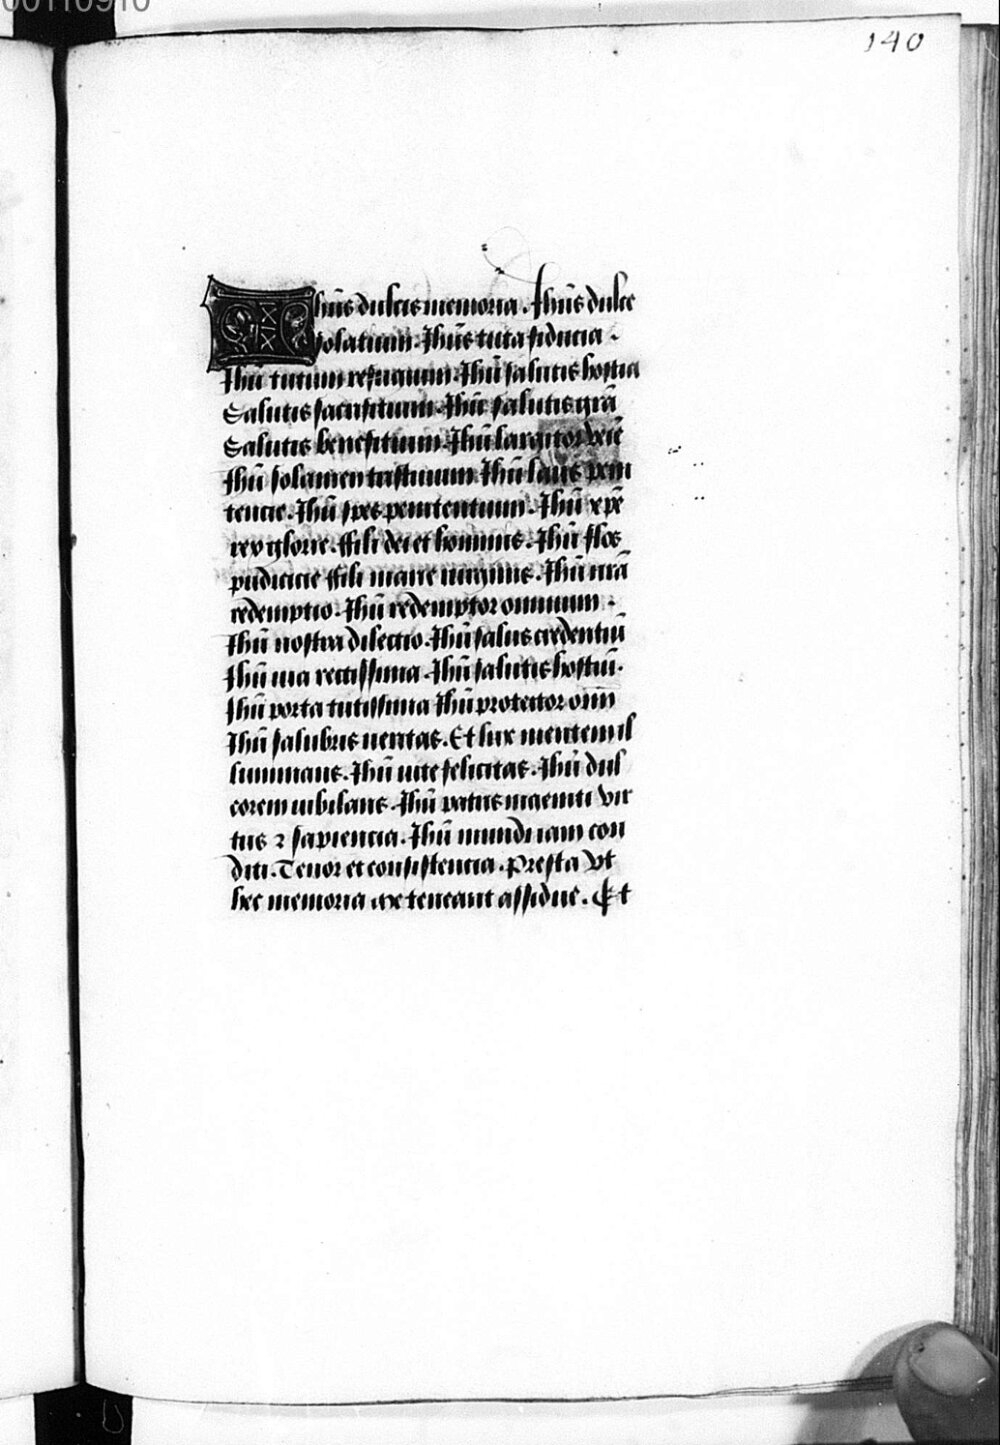 00110910
140
Ihūs dulcis memoria. Ihūs dulce
solatium. Ihūs tuta fiducia.
Ihū tutum refugium. Ihū salutis hostia
Salutis sacrificium. Ihū salutis grā
Salutis beneficium. Ihū largitor veīe
Ihū solamen tristium Ihū laus peni
tencie. Ihū spes penitentium. Ihū xpē
rex glorie. ffili dei et hominis. Ihū flos
pudicicie ffili marie uirginis. Ihū nrā
redemptio. Ihū redemptor omnium.
Ihū nostra dilectio. Ihū salus credentiū
Ihū uia rectissima. Ihū salutis hostiū.
Ihū porta tutissima Ihū protector oīm
Ihū salubris ueritas. Et lux mentem il
luminans. Ihū uite felicitas. Ihū dul
corem iubilans. Ihū patris magniti vir
tus ⁊ sapiencia. Ihū mundi iam con
diti. Tenor et consistencia. Presta vt
hec memoria que teneant assidue. Et